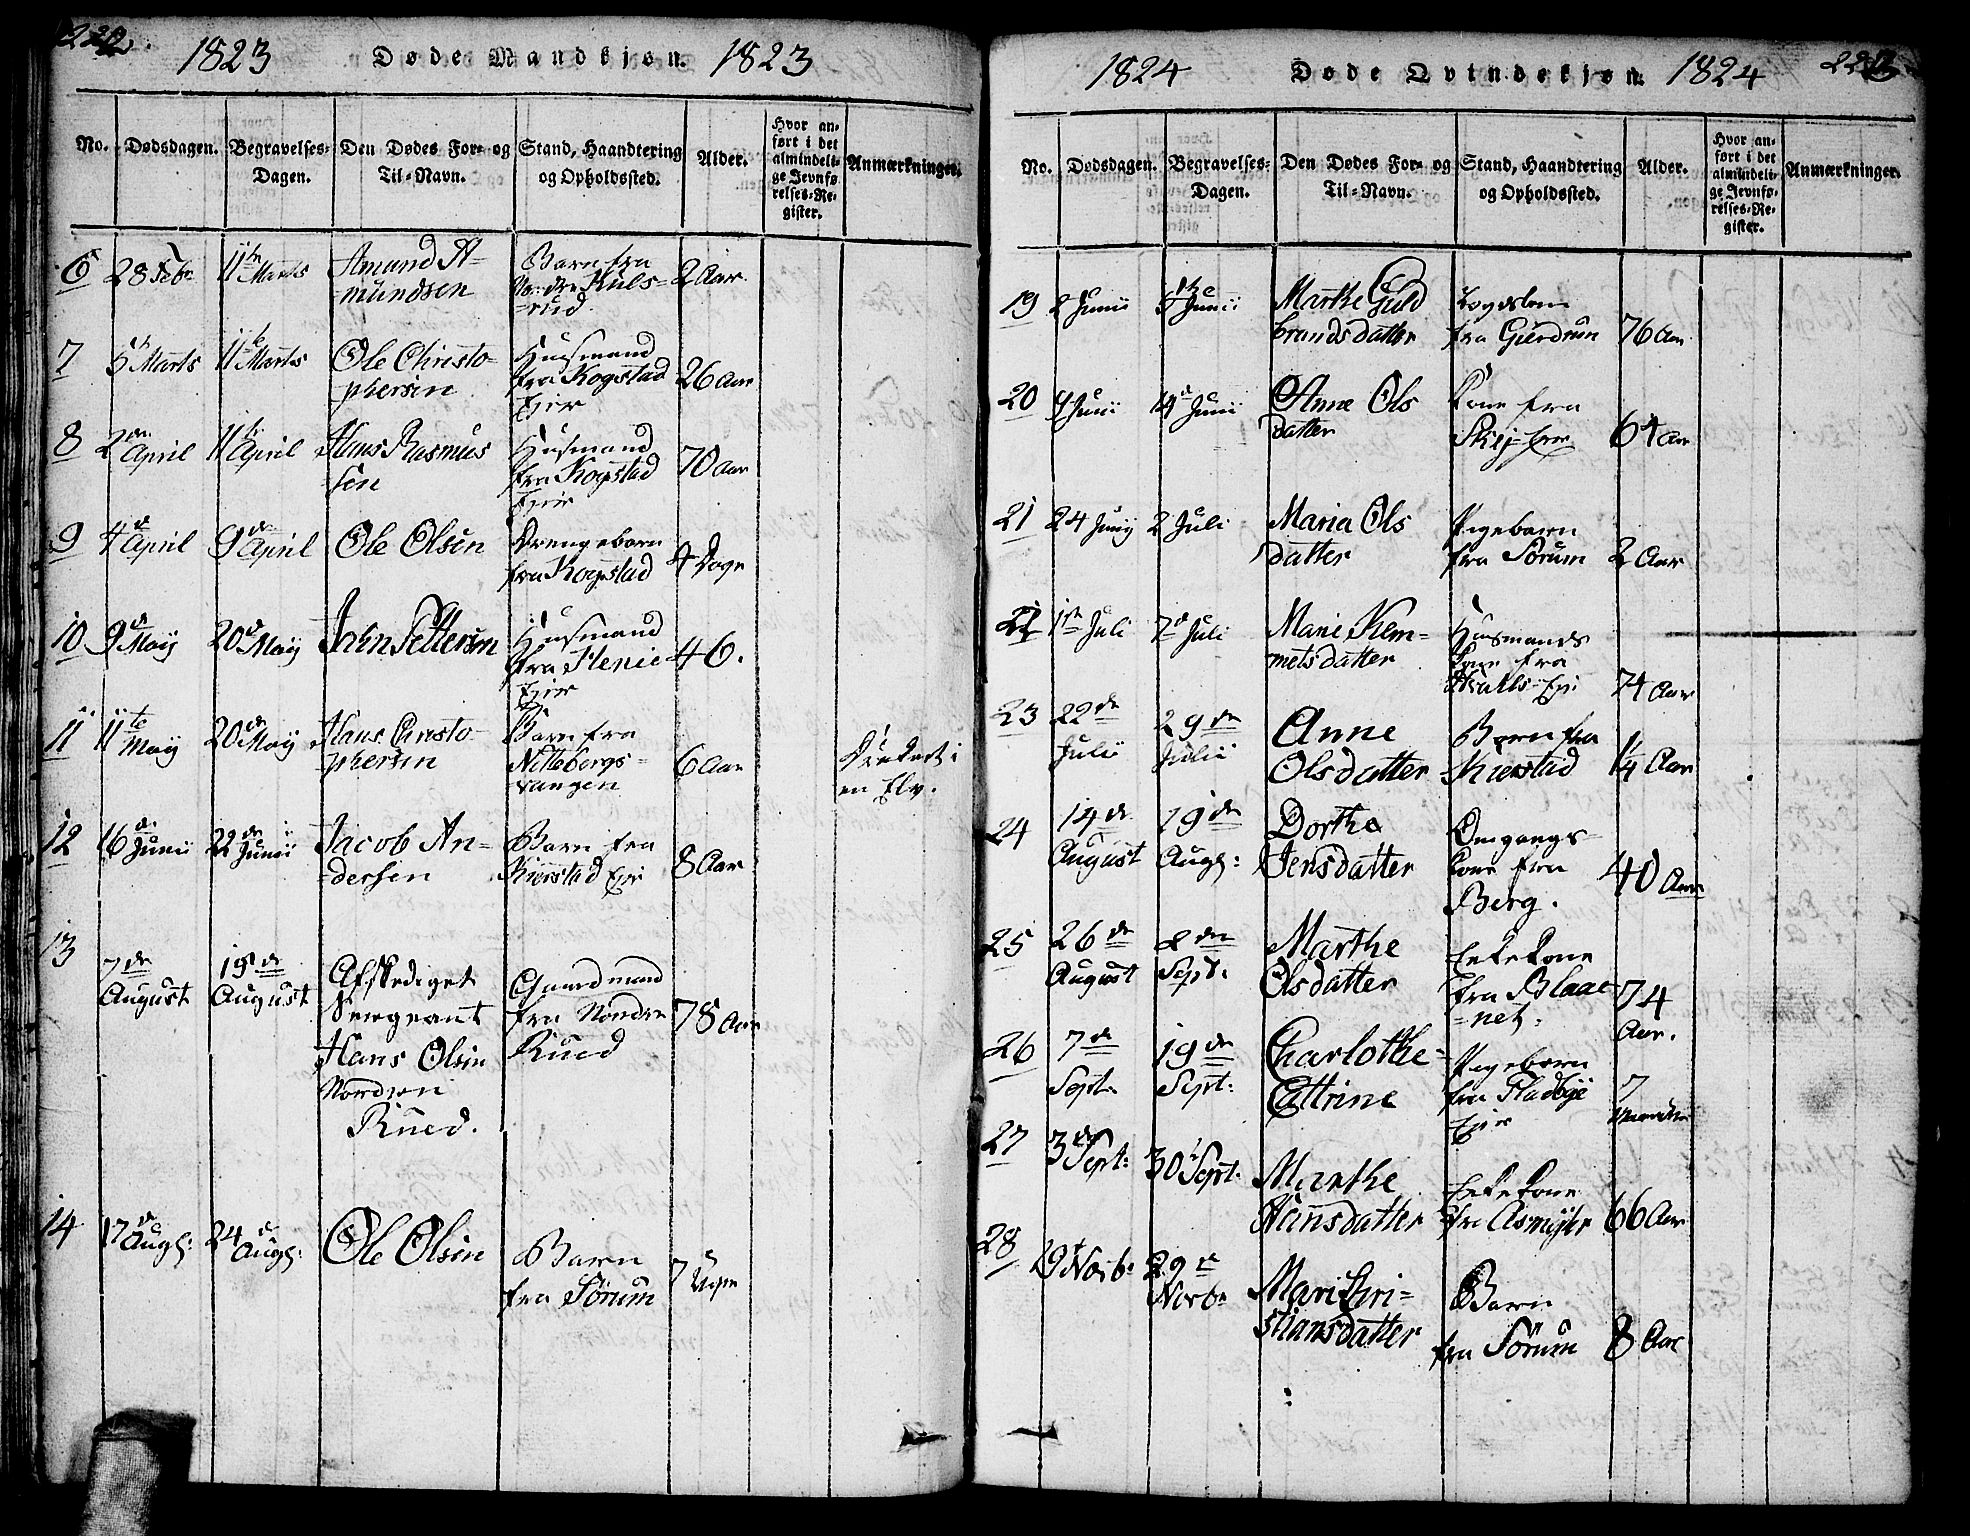 222.
1823 Døde Mandkjøn. 1823
No. Dødsdagen. Begravelses-Dagen. Den Dødes For- og Til-Navn. Stand, Haandtering og Opholdssted. Alder. Hvor anført i det almindelige Jevnførelses-Register. Anmærkninger.
6 28 Febr 11te Marts Amund A-
mundsen
Barn fra
Nordre Kuls-
rud.
2 Aar.
7 5 Marts 11te Marts Ole Christo-
phersen
Huusmand
fra Kogstad
Eier
26 Aar
8 2den April 11te April Hans Rasmus
sen
Huusmand
fra Kogstad
Eier
70 Aar
9 4de April 9de April Ole Olsen
Drengebarn
fra Kogstad
4 Dage
10 9de Maÿ 20de Maÿ John Pettersen
Huusmand
fra Henie
Eier
46.
11 11te Maÿ 20de Maÿ Hans Christo-
phersen
Barn fra
Nittebergs-
vangen
6 Aar
Druknet i
en Elv.
12 16de Junii 22de Junii Jacob An-
dersen
Barn fra
Kierstad Eje
8 Aar
13 7de
August
19de
August
Afskediget
Sergeant
Hans Olsen
Nordren
Rued.
Gaardmand
fra Nordre
Rued
78 Aar
14 17de Augs: 24de Augs: Ole Olsen
Barn
fra Sørum
7 Uger
1824 Døde Qvindekjøn. 1824
No. Dødsdagen. Begravelses-Dagen. Den Dødes For- og Til-Navn. Stand, Haandtering og Opholdssted. Alder. Hvor anført i det almindelige Jevnførelses-Register. Anmærkninger.
19 2 Junii Junii Marthe Guld
brandsdatter
fra Gierdrum
76 Aar
20 4 Junii 14de Junii Anne Ols
datter
Kone fra
64 Aar
21 24 Junÿ 2 Juli Maria Ols
datter
Pigebarn
fra Sørum
2 Aar
22 1ste Juli 7de Juli Marie Klem-
metsdatter
Huusmands
Kone fra
74 Aar
23 22de
Julii
29de
Julii
Anne
Olsdatter
Barn fra
Kierstad
1/4 Aar
24 14de
August
19de
Augs:
Dorthe
Jensdatter
Omgangs-
Kone fra
Berg.
40 Aar
25 26de
August
2den
Sept:
Marthe
Olsdatter
Enkekone
fra Blaae-
net.
74
Aar.
26 7de
Sept:
19de
Sept:
Charlothe
Cattrine
Pigebarn
fra Fladbye
Eier
7
27 3de Sept: 30 Sept: Marthe
Hansdatter
Enkekone
fra Asmyhr
66 Aar
28 19 Novbr 29de
Novbr
Mari Chri-
stiansdatter
Barn
fra Sørum
8 Aar